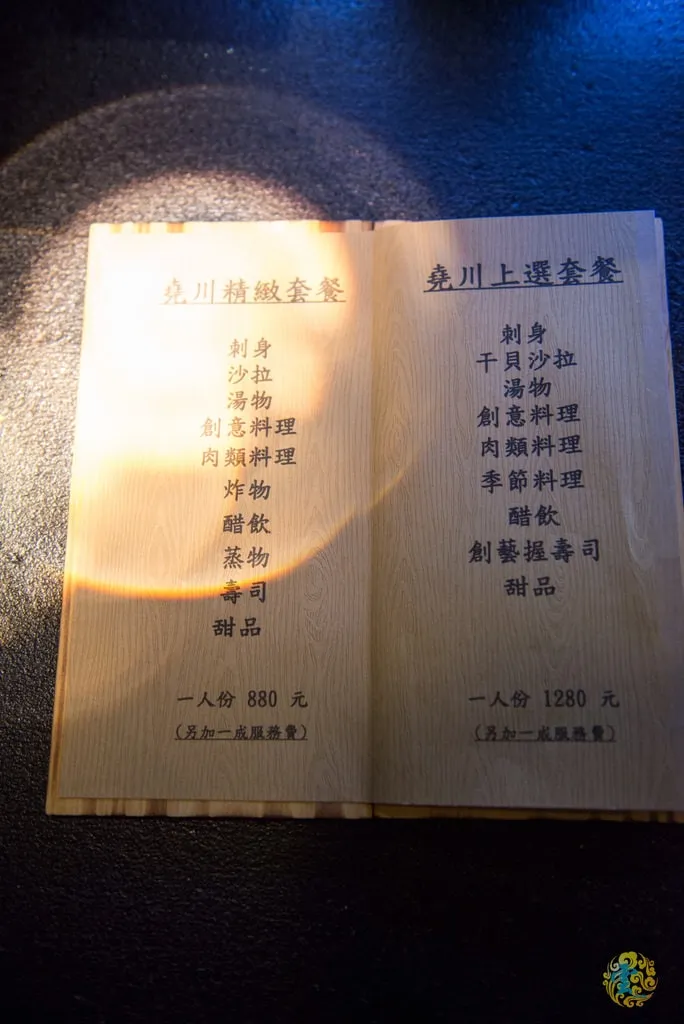 堯川精緻套餐
刺身
沙拉
湯物
創意料理
肉類料理
炸物
醋飲
蒸物
壽司
甜品
一人份 880 元
(另加一成服務費)
堯川上選套餐
刺身
干貝沙拉
湯物
創意料理
肉類料理
季節料理
醋飲
創藝握壽司
甜品
一人份 1280 元
(另加一成服務費)